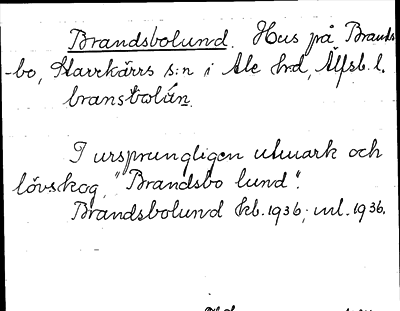 Brandsbolund. Hus på Brands
-bo, Starrkärrs s:n i Ale hrd, Älfsb. l.
bransbolán.
I ursprungligen utmark och
lövskog, "Brandsbo lund".
Brandsbolund kb. 1936; ml. 1936.